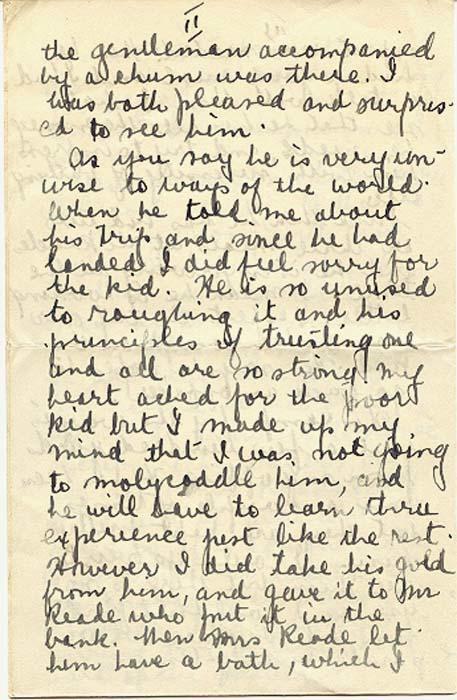 II
the gentleman accompanied
by a chum was there. I
was both pleased and surpris-
ed to see him.
As you say he is very un-
wise to ways of the world.
When he told me about
his trip and since he had
landed I did feel sorry for
the kid. He is so unused
to roughing it and his
principles of trusting one
and all are so strong my
heart ached for the poor
kid but I made up my
mind that I was not going
to molycoddle him, and
he will have to learn thru
experience just like the rest.
However I did take his gold
from him, and gave it to Mr
Reade who put it in the
bank. Then Mrs Reade let
him have a bath, which I